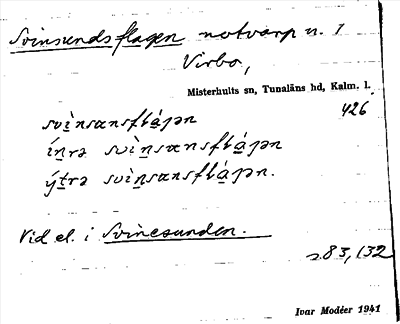 Svinsundsflagen notvarp n. 1
Virbo,
Misterhults sn, Tunaläns hd, Kalm. l.
426
svìnsɯnsflágən
í̱nrə svìnsɯnsflágən
ýtrə svìnsɯnsflágən.
Vid el. i Svinesunden.
s. 83, 132
Ivar Modéer 1941